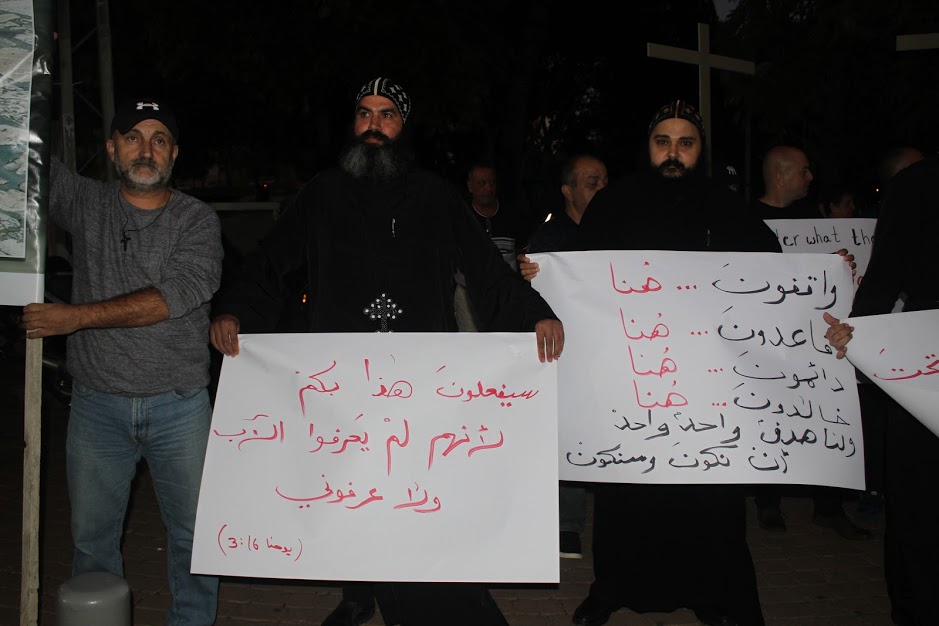 سيفعلونَ هذا بكم
لأنهم لمْ يَعرفوا الآب
ولا عرفوني
(يوحنا 3:16)
واقفونَ ... هُنا
قاعدونَ ... هُنا
دائمونَ ... هُنا
خالدونَ ... هُنا
ولنا هدفٌ واحدٌ واحدٌ
أن نكونَ وسنكون
ter what the
تحتَ